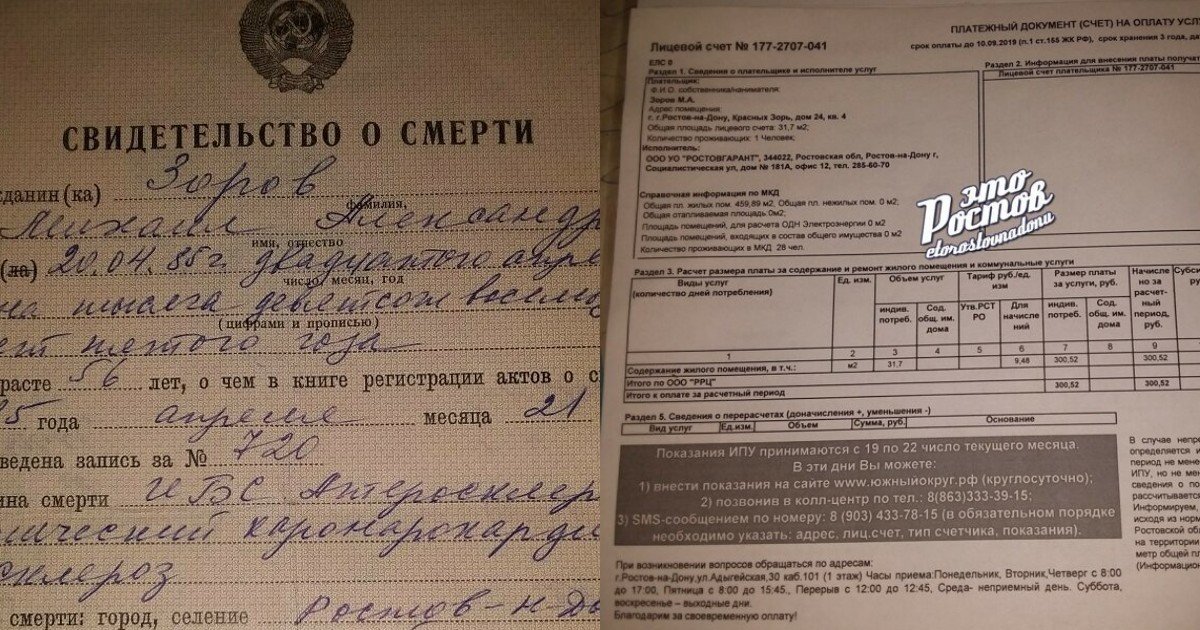 СВИДЕТЕЛЬСТВО О СМЕРТИ
жданин (ка) Зоров
фамилия,
Михаил Александр
имя, отчество
(ла) 20.04.85г. двадцатого апре
число, месяц, год
на тысяча девятсот восемь
(цифрами и прописью)
ят пятого года
расте 56 лет, о чем в книге регистрации актов о с
85 года апреля месяца 21
ведена запись за № 720
ина смерти ИБС Атеросклер
ический коронарокарди
склероз
смерти: город, селение Ростов-н-До
ПЛАТЕЖНЫЙ ДОКУМЕНТ (СЧЕТ) НА ОПЛАТУ УСЛ
Лицевой счет № 177-2707-041
срок оплаты до 10.09.2019 (п.1 ст.155 ЖК РФ), срок хранения 3 года, да
ЕЛС 0
Раздел 1. Сведения о плательщике и исполнителе услуг
Плательщик:
Ф.И.О. собственника/нанимателя:
Зоров М.А.
Адрес помещения:
г. г.Ростов-на-Дону, Красных Зорь, дом 24, кв. 4
Общая площадь лицевого счета: 31,7 м2;
Количество проживающих: 1 Человек;
Исполнитель:
ООО УО "РОСТОВГАРАНТ", 344022, Ростовская обл, Ростов-на-Дону г,
Социалистическая ул, дом № 181А, офис 12, тел. 285-60-70
Справочная информация по МКД
Общая пл. жилых пом. 459,89 м2, Общая пл. нежилых пом. 0 м2,
Общая отапливаемая площадь 0м2;
Площадь помещений, для расчета ОДН Электроэнергии 0 м2
Площадь помещений, входящих в состав общего имущества 0 м2
Количество проживающих в МКД 28 чел.
Раздел 2. Информация для внесения платы получат
Лицевой счет плательщика № 177-2707-041
это
Ростов
etorostovnadonu
Раздел 3. Расчет размера платы за содержание и ремонт жилого помещения и коммунальные услуги
Виды услуг (количество дней потребления) Ед. изм. Объем услуг Тариф руб./ед. изм Размер платы за услуги, руб. Начисле но за расчет- ный период, руб. Субси ру
индив. потреб. Сод. общ. им. дома Утв.РСТ РО Для начисле ний индив. потреб. Сод. общ. им. дома
1 2 3 4 5 6 7 8 9
Содержание жилого помещения, в т.ч.: м2 31.7 9,48 300,52 300,52
Итого по ООО "РРЦ" 300,52 300,52
Итого к оплате за расчетный период
Раздел 5. Сведения о перерасчетах (доначисления +, уменьшения -)
Вид услуг Ед.изм. Объем Сумма, руб. Основание
Показания ИПУ принимаются с 19 по 22 число текущего месяца.
В эти дни Вы можете:
1) внести показания на сайте www.южныйокруг.рф (круглосуточно);
2) позвонив в колл-центр по тел.: 8(863)333-39-15;
3) SMS-сообщением по номеру: 8 (903) 433-78-15 (в обязательном порядке
необходимо указать: адрес, лиц.счет, тип счетчика, показания).
В случае непре
определяется и
период не мене
ИПУ, но не мен
сведения о по
рассчитывается
Информируем,
исходя из норм
Ростовской обл
на территории
метр общей пл
(Информацион
При возникновении вопросов обращаться по адресам:
г.Ростов-на-Дону,ул.Адыгейская,30 каб.101 (1 этаж) Часы приема:Понедельник, Вторник,Четверг с 8:00
до 17:00, Пятница с 8:00 до 15:45., Перерыв с 12:00 до 12:45, Среда- неприемный день. Суббота,
воскресенье – выходные дни.
Благодарим за своевременную оплату!